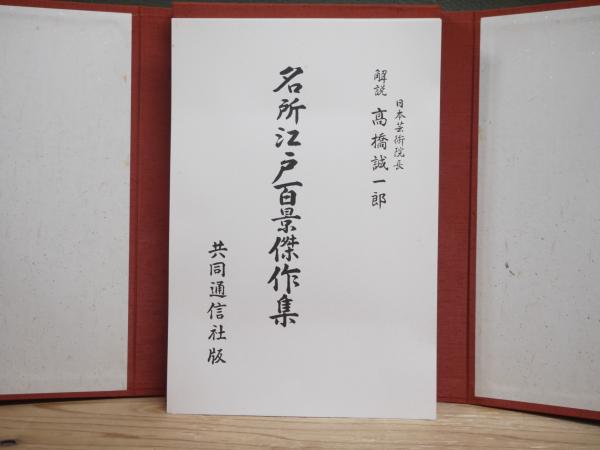 日本芸術院長
解説 髙橋誠一郎
名所江戸百景傑作集
共同通信社版